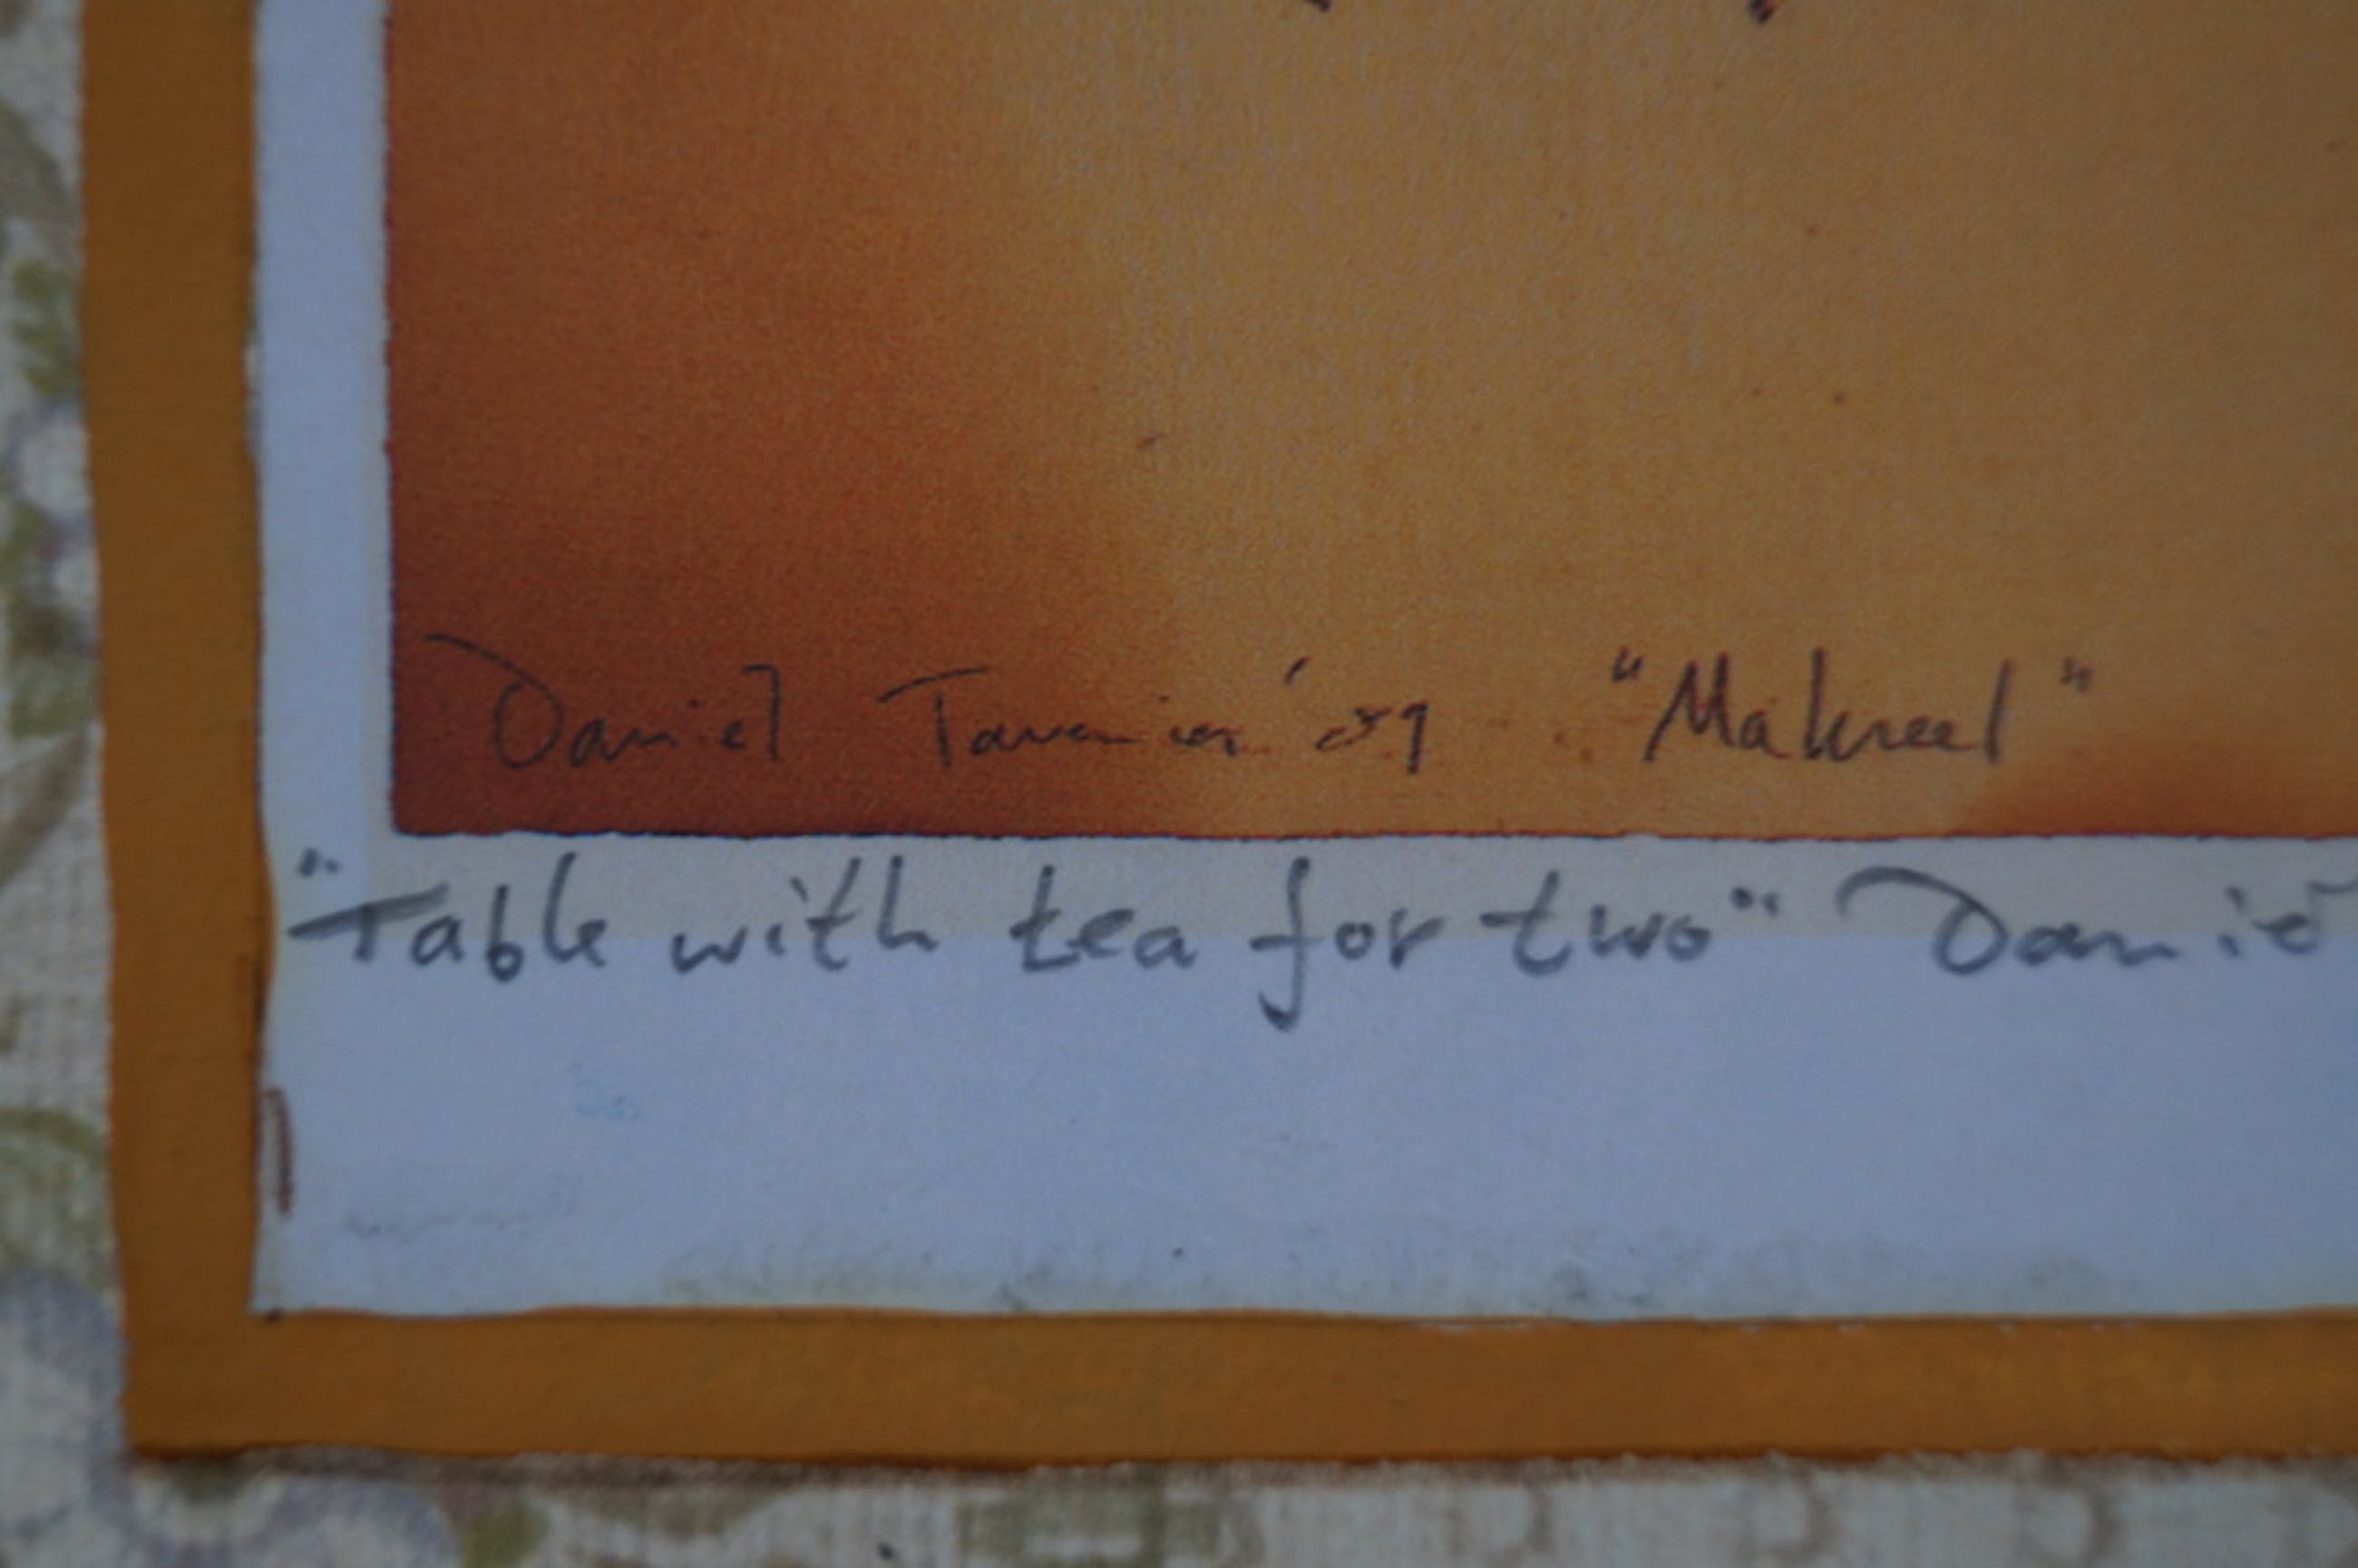 Daniel Tavenier '89 "Makreel"
"Table with tea for two" Danië